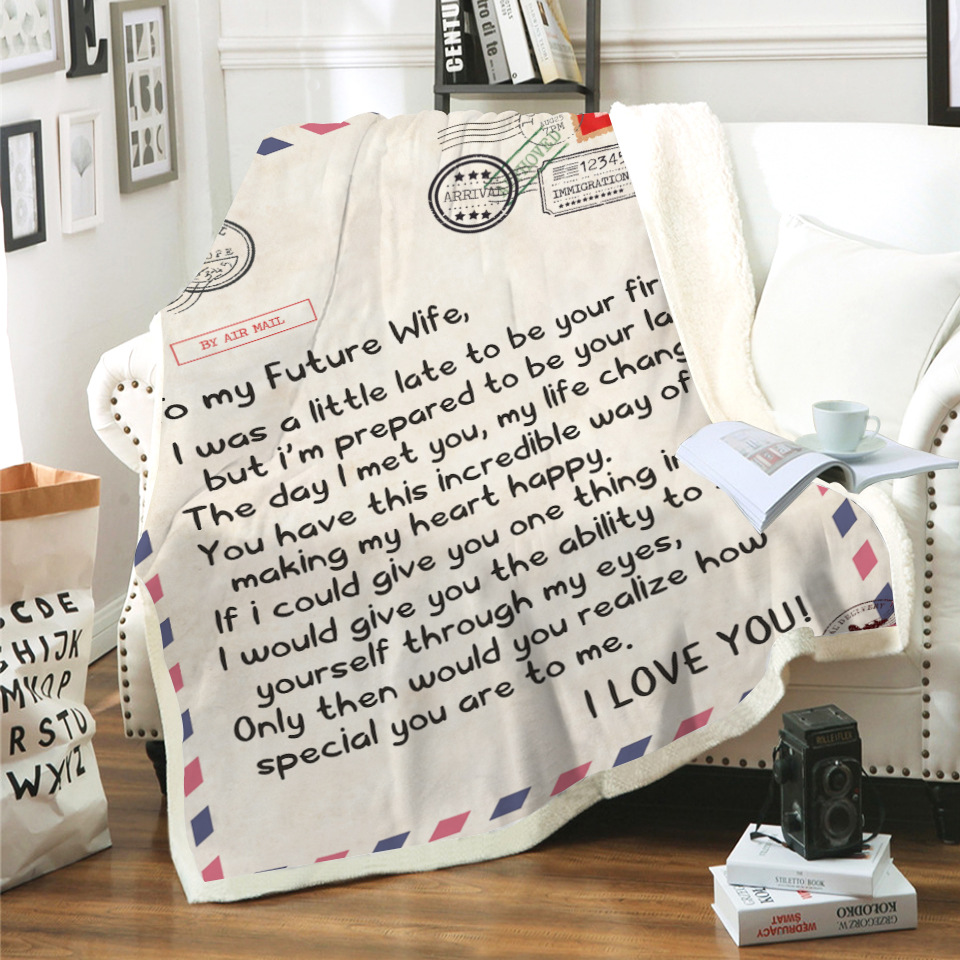 CENTU
tro di te
E
7PM
ARRIVAL
12345
IMMIGRATION
BY AIR MAIL
o my Future Wife,
I was a little late to be your fir
but i'm prepared to be your la
The day I met you, my life chang
You have this incredible way of
making my heart happy.
If i could give you one thing in
I would give you the ability to
yourself through my eyes,
Only then would you realize how
special you are to me.
I LOVE YOU!
CDE
GHIJK
MNOP
RSTU
WXYZ
ROLLEIFLEX
STILETTO BOOK
GRZEGORZ W.
KOŁODKO
WĘDRUJĄCY
ŚWIAT